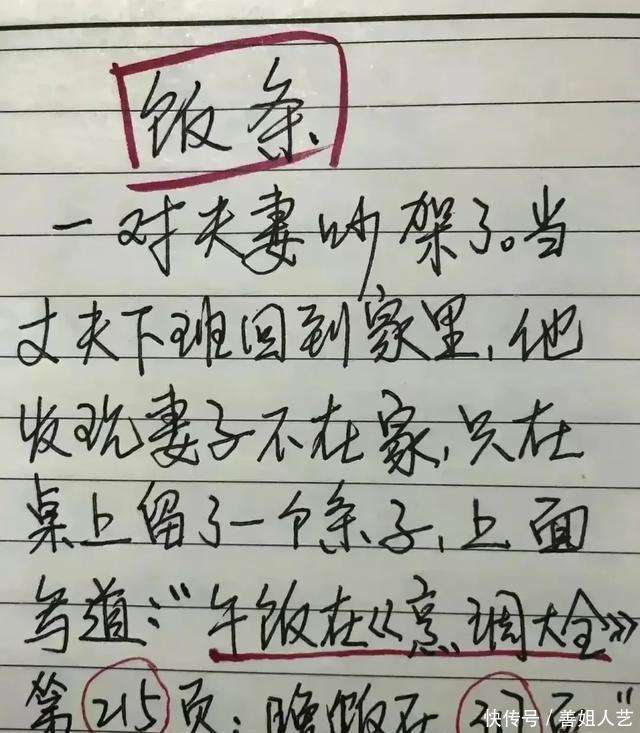 饭条
一对夫妻吵架了。当
丈夫下班回到家里,他
发现妻子不在家,只在
桌上留了一个条子,上面
写道:“午饭在《烹调大全》
第215页;晚饭在
快传号/善姐人艺